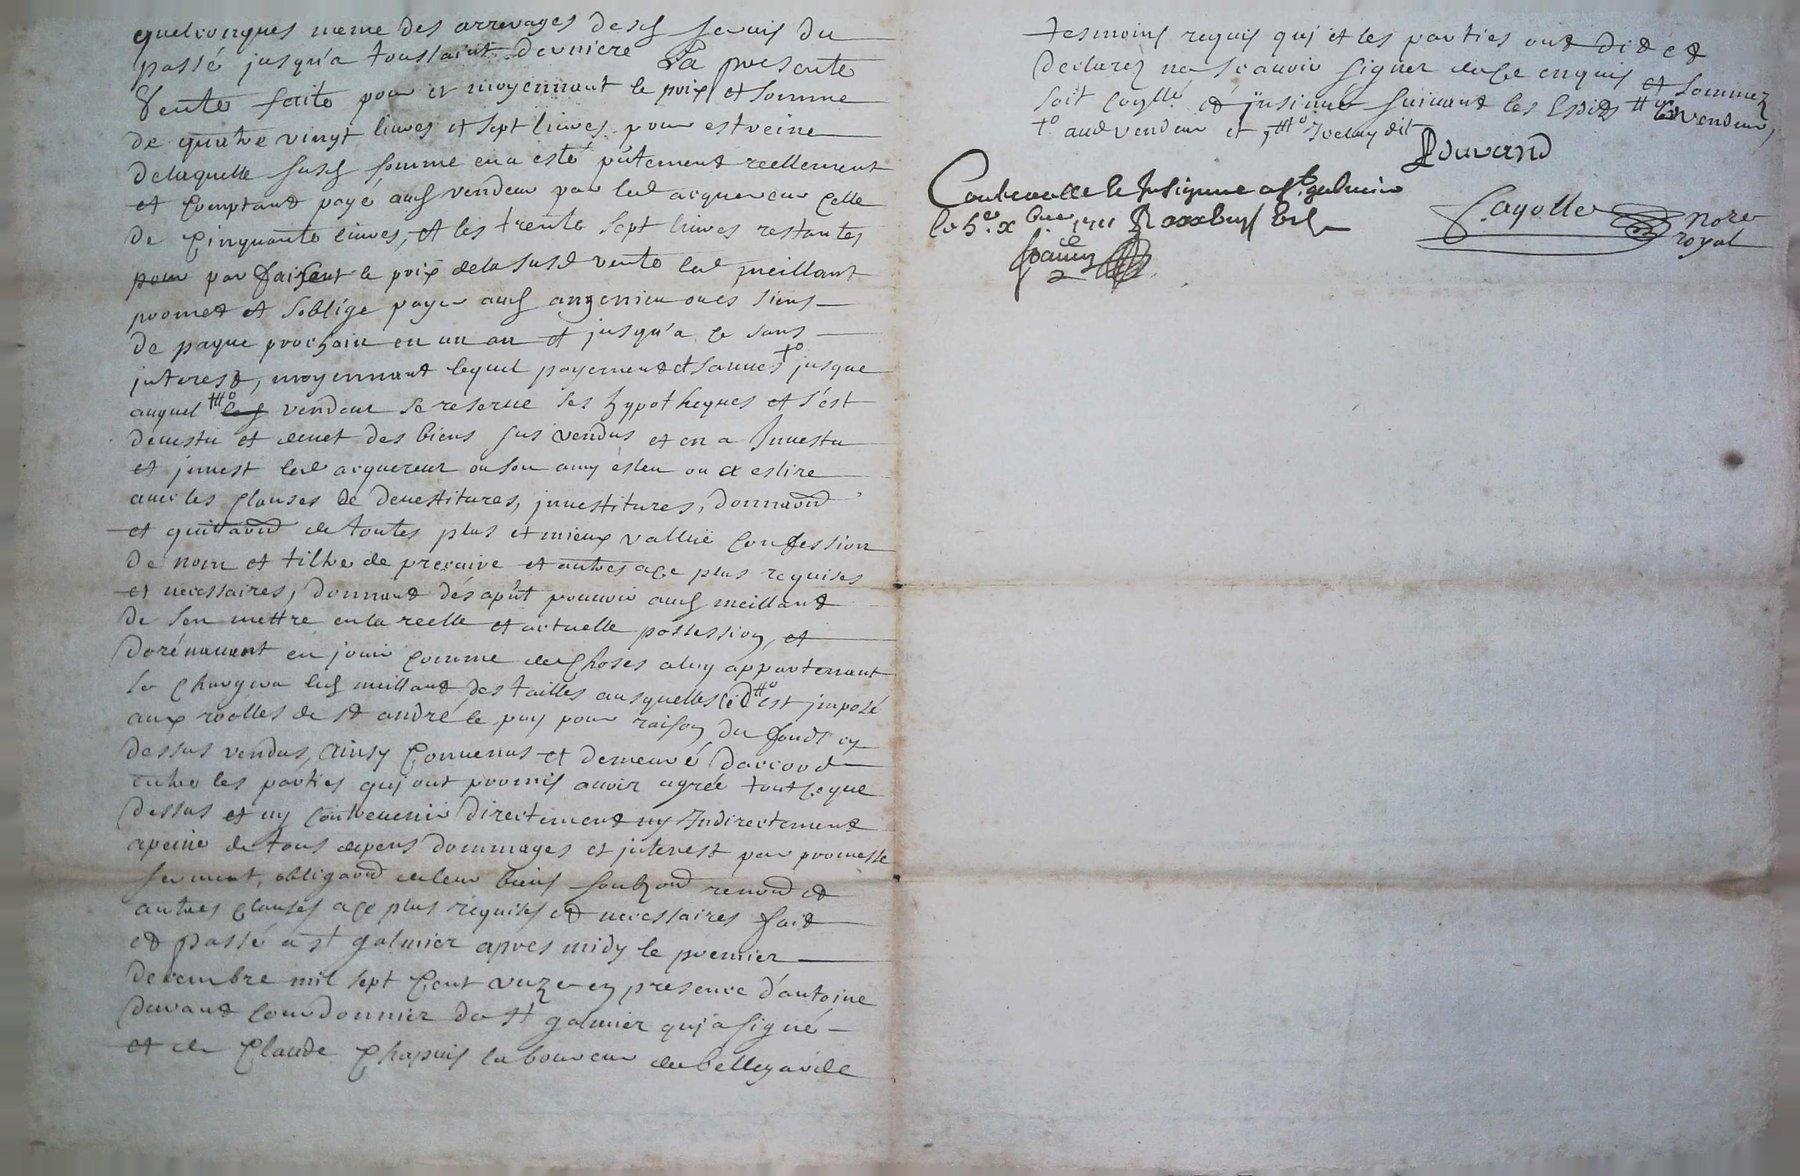 quelconques meme des arrerages desd servis du
passé jusqu'a toussaint derniere La presente
Vente faite pour et moyennant le prix et somme
de quatre vingt livres et sept livres pour estreine
delaquelle susd somme en a esté pntement reellement
et Comptant payé aud vendeur par led acquereur Celle
de Cinquante livres, et les trente sept livres restantes
pour par faisent le prix de la susd vente led meillant
promet et soblige payer aud angenieu ou es siens
de paque prochain en un an et jusqu'a ce sans
interest, moyennant lequel payement et sauues jusque
auquel vendeur se reserue ses hypotheques et s'est
deuestu et deuet des biens sus vendus et en a Inuestu
et jnuest led acquereur ou son amy esleu ou a eslire
auec les Clauses de deuestitures, jnuestitures, donnaond
et quittaond de toutes plus et mieux vallue Confession
de nom et tiltre de precaire et autres a ce plus requises
et necessaires, donnant dés apñt pouuoir aud meillant
de sen mettre en la reelle et actuelle possession, et
dorénauant en jouir Comme de Choses a luy appartenant
se Chargera led meillant des tailles ausquelles il est jmposé
aux roolles de st andré le puy pour raison du fonds cy
dessus vendus, ainsy Conuenus et demeuré daccord
entre les parties qui ont promis auoir agréé tout Ce que
dessus et ny Contreuenir directement ny Indirectement
apeine de tous depens dommages et jnterest par promesse
serment, obligaond de leur biens soubzond renond et
autres Clauses a Ce plus requises et necessaires fait
et passé a st galmier apres midy le premier
decembre mil sept Cent unze en presence d'antoine
duvand Courdonnier de st galmier qui a signé
et de Claude Chapuis laboureur de bellegarde
tesmoins requis qui et les parties ont dit et
declarez ne scauoir signer de Ce enquis et sommez
soit Coņlle et jnsinué suiuant les Edits vendeur,
aud vendeur et
Duvand
Controllé et Insignué a st galmier
le 5e xbre 1711
Cayolle nore
royal